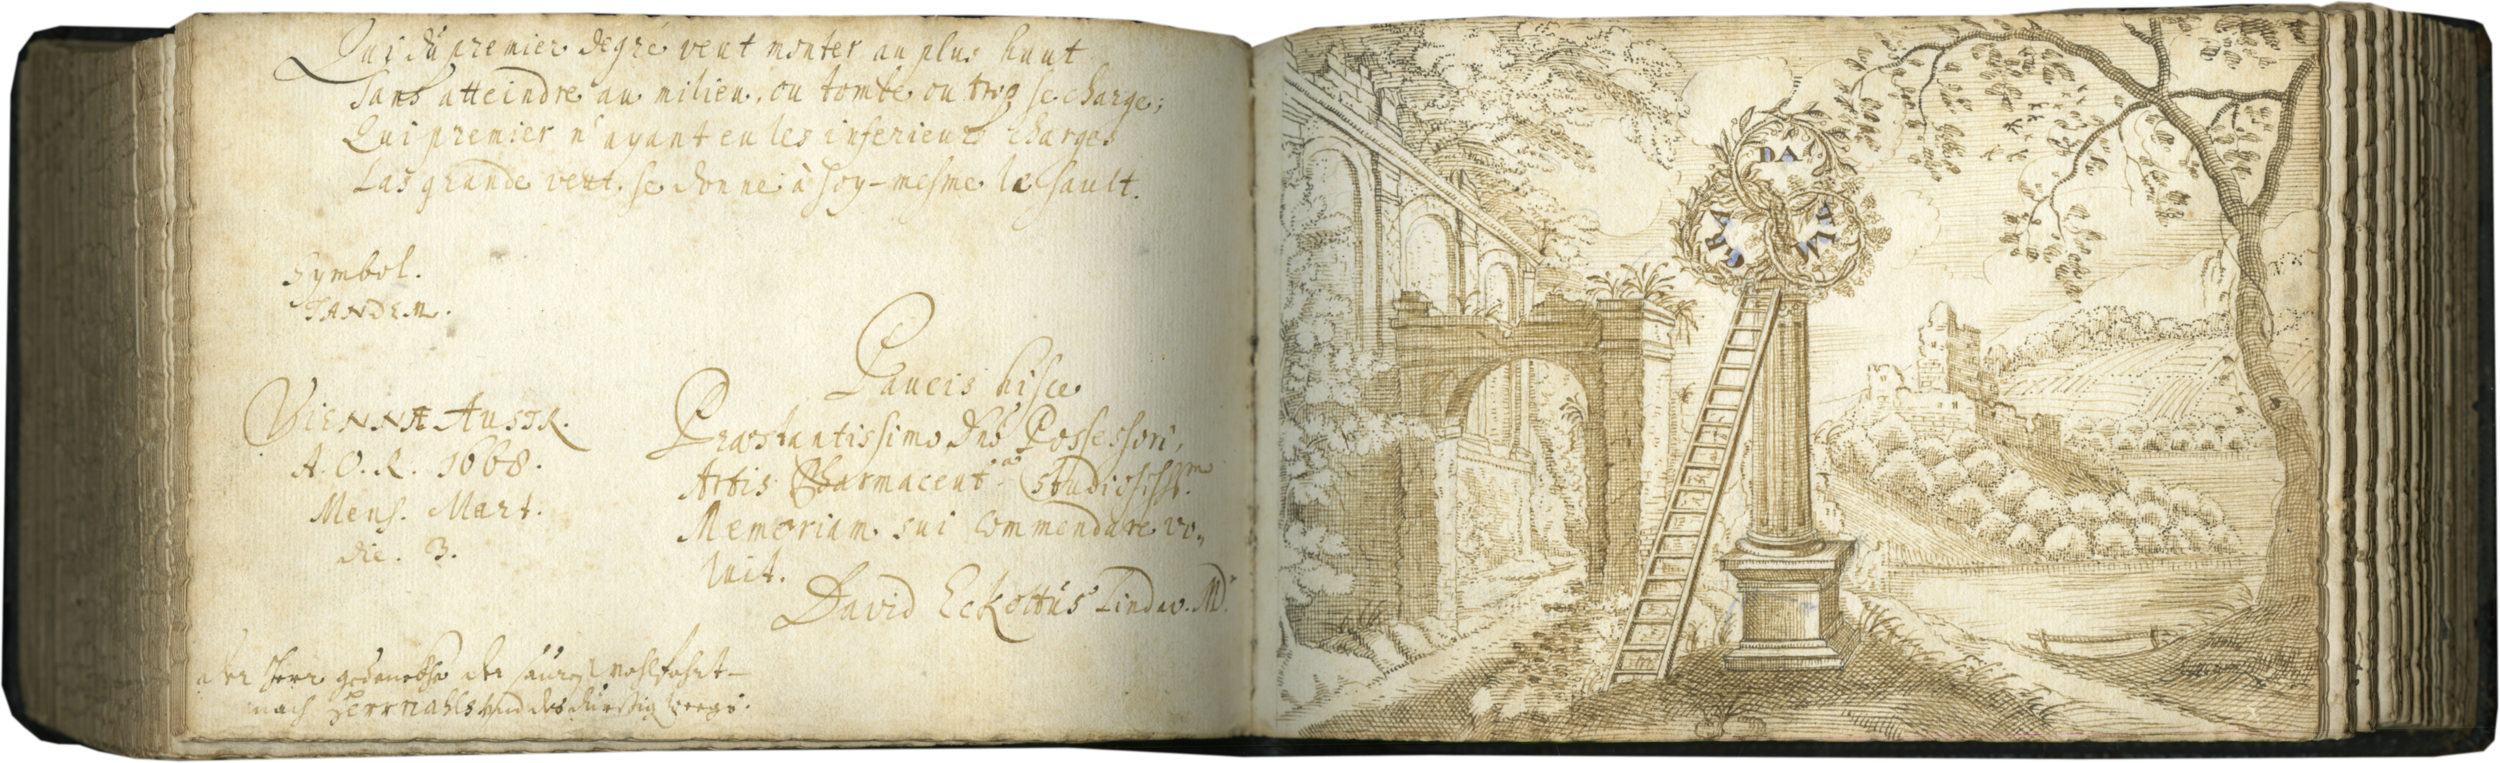 Qui du premier degré veut monter au plus haut
Sans atteindre au milieu, ou tombe ou trop se charge;
Qui premier n'ayant eu les inferieurs charges
Las grande veut, se donne à soy-mesme le sault.
Symbol.
TANDEM.
VIENNÆ AUSTR.
A. O. R. 1668.
Mens. Mart.
die. 3.
Paucis hisce
Præstantissimo Dno Possessori,
Artis Pharmaceut. Studiosiss.
Memoriam sui commendare vo„
luit.
David Eckoltus Lindav. MD.
der Herr gedencke der
nach Herrnahls und des durstig
DA
GRA
TIM